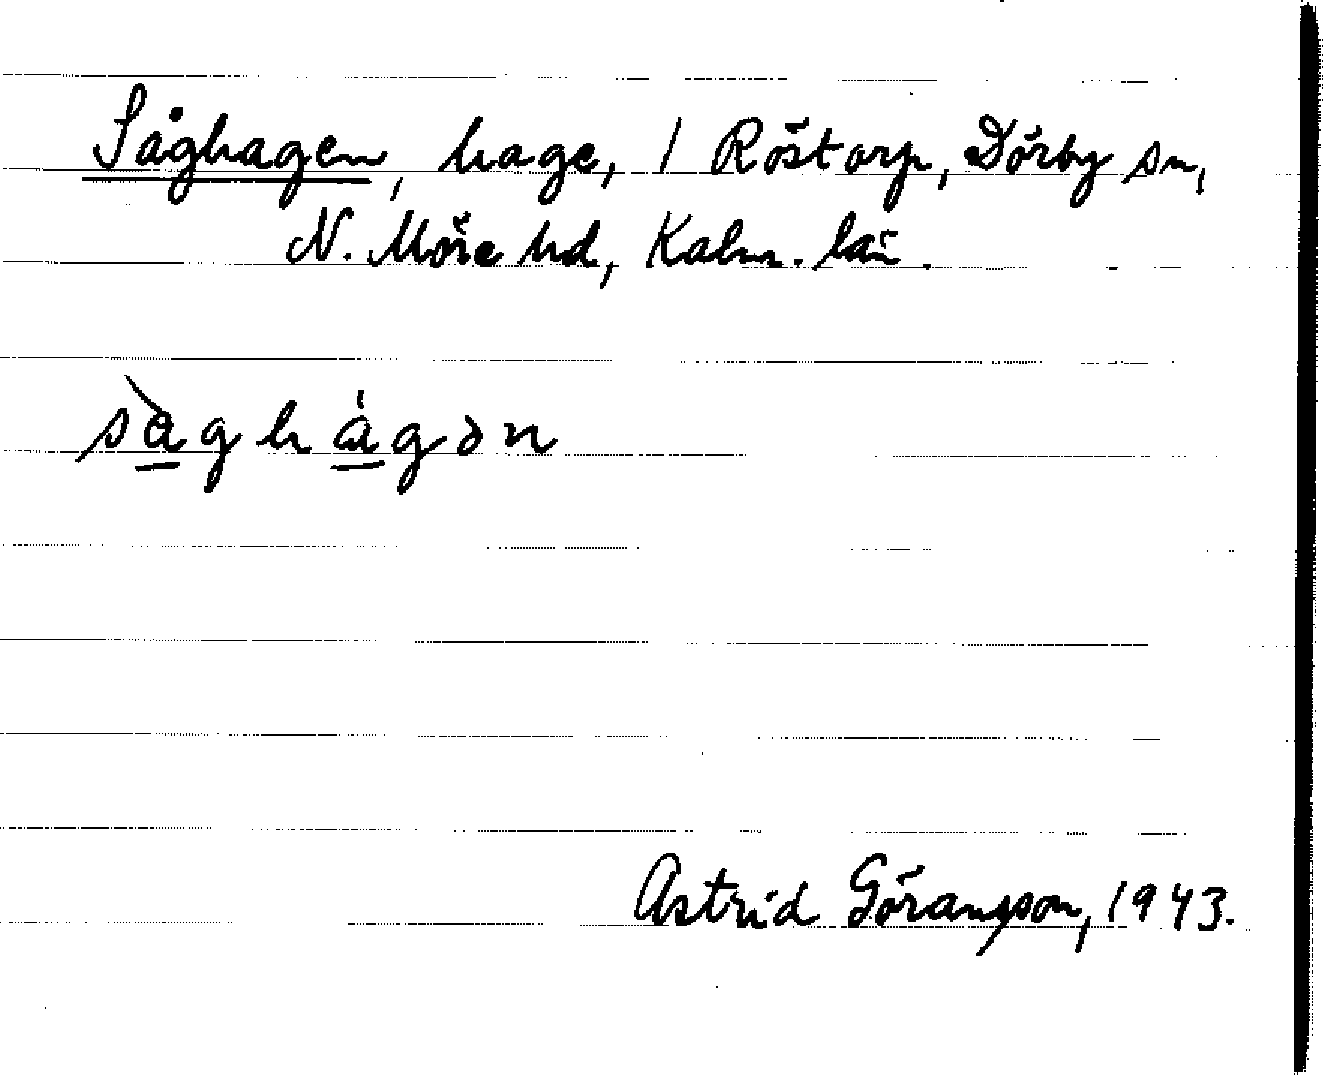 Såghagen, hage, 1 Röstorp, Dörby sn,
N. Möre hd, Kalm. län.
sàghágən
Astrid Göransson, 1943.